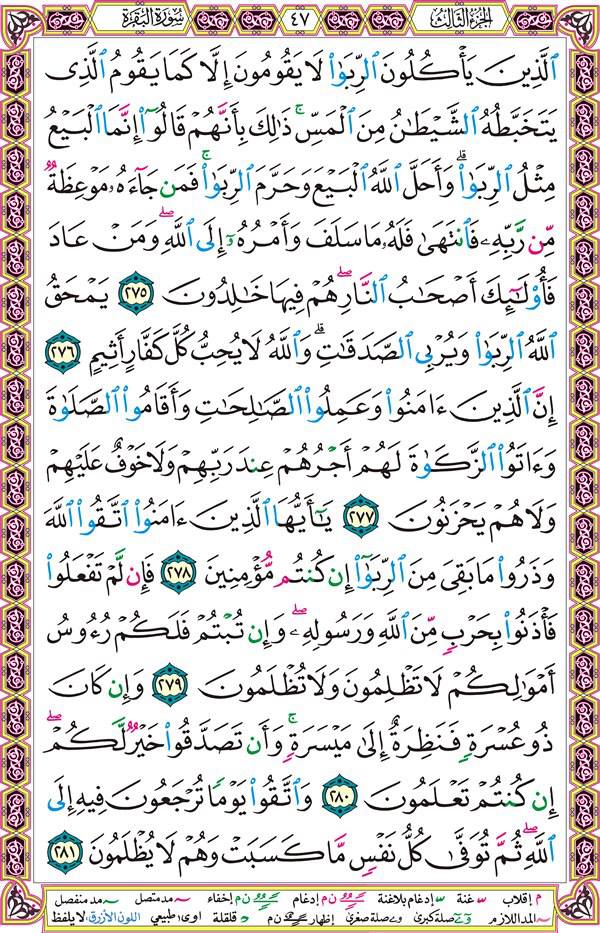 الجزء الثالث ٤٧ سورة البقرة
ٱلَّذِينَ يَأْكُلُونَ ٱلرِّبَوٰا۟ لَا يَقُومُونَ إِلَّا كَمَا يَقُومُ ٱلَّذِى
يَتَخَبَّطُهُ ٱلشَّيْطَـٰنُ مِنَ ٱلْمَسِّ ۚ ذَٰلِكَ بِأَنَّهُمْ قَالُوٓا۟ إِنَّمَا ٱلْبَيْعُ
مِثْلُ ٱلرِّبَوٰا۟ ۗ وَأَحَلَّ ٱللَّهُ ٱلْبَيْعَ وَحَرَّمَ ٱلرِّبَوٰا۟ ۚ فَمَن جَآءَهُۥ مَوْعِظَةٌ
مِّن رَّبِّهِۦ فَٱنتَهَىٰ فَلَهُۥ مَا سَلَفَ وَأَمْرُهُۥٓ إِلَى ٱللَّهِ ۖ وَمَنْ عَادَ
فَأُو۟لَـٰٓئِكَ أَصْحَـٰبُ ٱلنَّارِ ۖ هُمْ فِيهَا خَـٰلِدُونَ ٢٧٥ يَمْحَقُ
ٱللَّهُ ٱلرِّبَوٰا۟ وَيُرْبِى ٱلصَّدَقَـٰتِ ۗ وَٱللَّهُ لَا يُحِبُّ كُلَّ كَفَّارٍ أَثِيمٍ ٢٧٦
إِنَّ ٱلَّذِينَ ءَامَنُوا۟ وَعَمِلُوا۟ ٱلصَّـٰلِحَـٰتِ وَأَقَامُوا۟ ٱلصَّلَوٰةَ
وَءَاتَوُا۟ ٱلزَّكَوٰةَ لَهُمْ أَجْرُهُمْ عِندَ رَبِّهِمْ وَلَا خَوْفٌ عَلَيْهِمْ
وَلَا هُمْ يَحْزَنُونَ ٢٧٧ يَـٰٓأَيُّهَا ٱلَّذِينَ ءَامَنُوا۟ ٱتَّقُوا۟ ٱللَّهَ
وَذَرُوا۟ مَا بَقِىَ مِنَ ٱلرِّبَوٰٓا۟ إِن كُنتُم مُّؤْمِنِينَ ٢٧٨ فَإِن لَّمْ تَفْعَلُوا۟
فَأْذَنُوا۟ بِحَرْبٍ مِّنَ ٱللَّهِ وَرَسُولِهِۦ ۖ وَإِن تُبْتُمْ فَلَكُمْ رُءُوسُ
أَمْوَٰلِكُمْ لَا تَظْلِمُونَ وَلَا تُظْلَمُونَ ٢٧٩ وَإِن كَانَ
ذُو عُسْرَةٍ فَنَظِرَةٌ إِلَىٰ مَيْسَرَةٍ ۚ وَأَن تَصَدَّقُوا۟ خَيْرٌ لَّكُمْ ۖ
إِن كُنتُمْ تَعْلَمُونَ ٢٨٠ وَٱتَّقُوا۟ يَوْمًا تُرْجَعُونَ فِيهِ إِلَى
ٱللَّهِ ۖ ثُمَّ تُوَفَّىٰ كُلُّ نَفْسٍ مَّا كَسَبَتْ وَهُمْ لَا يُظْلَمُونَ ٢٨١
م إقلاب غنة إدغام بلاغنة ن م إدغام ن م إخفاء مد متصل مد منفصل
المد اللازم صلة كبرى صلة صغرى إظهار ن م قلقلة اوى طبيعي اللون الأزرق: لا يلفظ